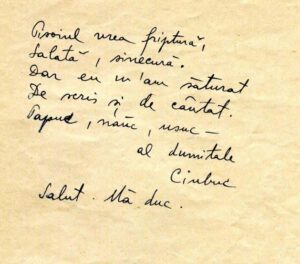 Pisoiul vrea friptură,
Salată, sinecură.
Dar eu m'am săturat
De scris și de cântat.
Papuc, uscuc —
al dumitale
Ciubuc
Salut. Mă duc.